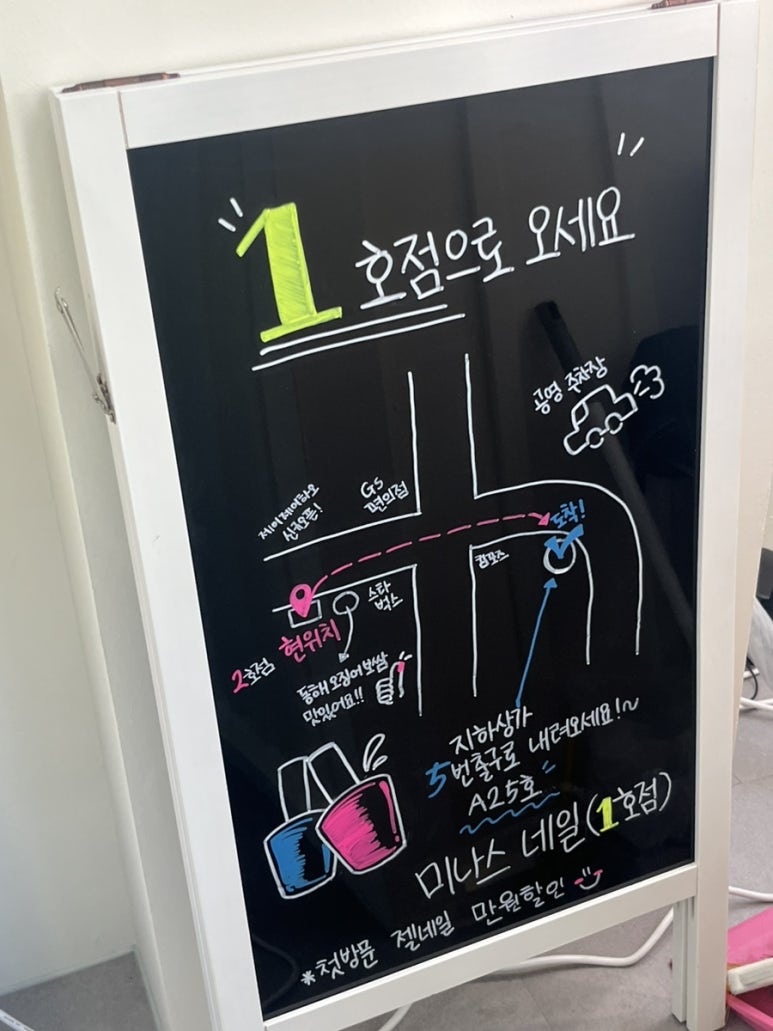 1호점으로 오세요
공영 주차장
GS
편의점
제이제이하오
신규오픈!
도착!
컴포즈
스타
벅스
현위치
2호점
동해 오징어보쌈
맛있어요!!
지하상가
5번출구로 내려오세요!~
A25호
미나스 네일(1호점)
*첫방문 젤네일 만원할인